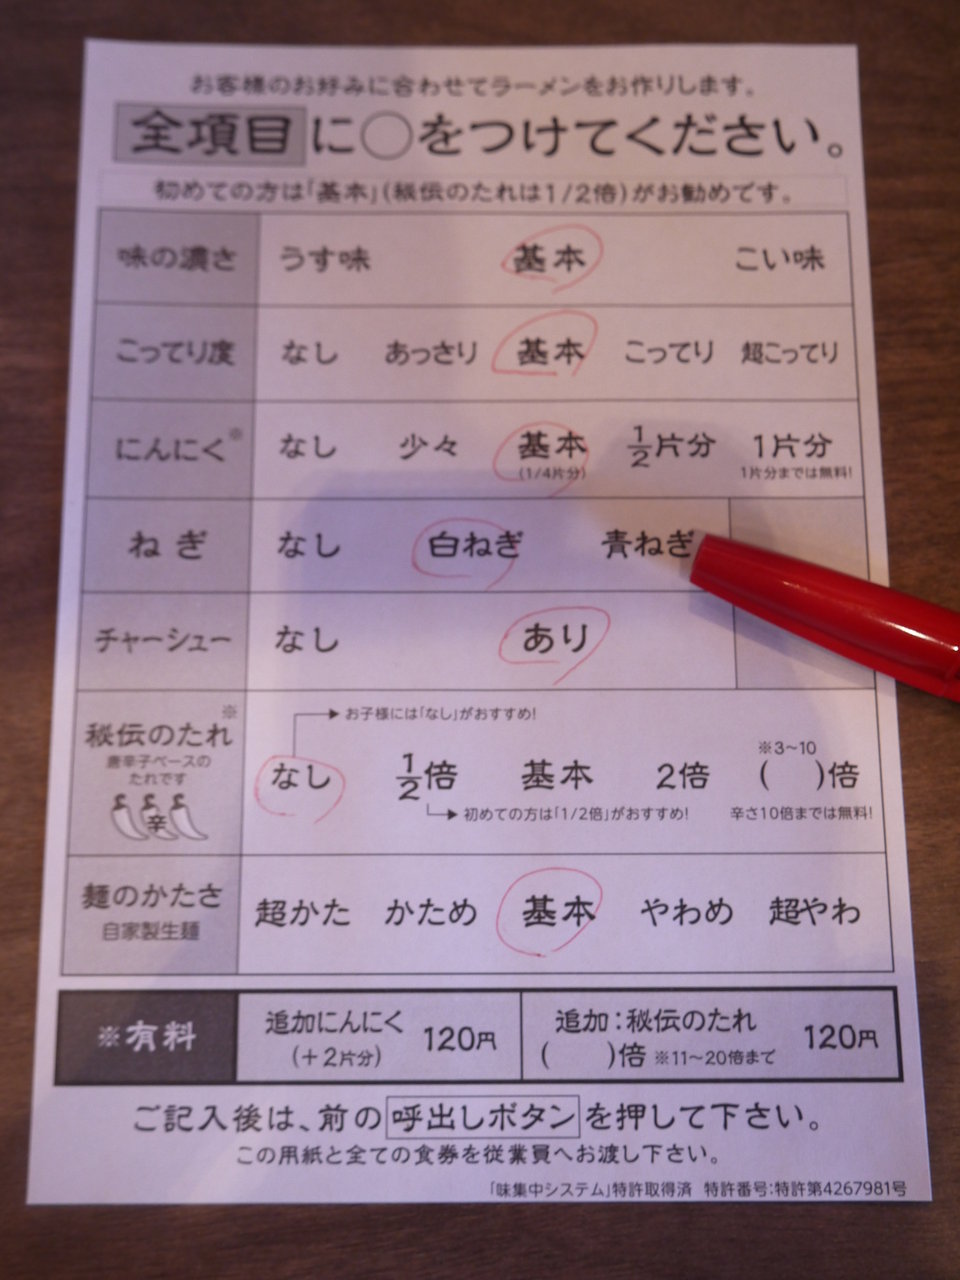 お客様のお好みに合わせてラーメンをお作りします。
全項目に○をつけてください。
初めての方は「基本」(秘伝のたれは1/2倍)がお勧めです。
味の濃さ うす味 基本 こい味
こってり度 なし あっさり 基本 こってり 超こってり
にんにく※ なし 少々 基本 1/2片分 1片分
(1/4片分) 1片分までは無料!
ねぎ なし 白ねぎ 青ねぎ
チャーシュー なし あり
お子様には「なし」がおすすめ!
秘伝のたれ※
唐辛子ベースの
たれです
辛
※3〜10
なし 1/2倍 基本 2倍 ( )倍
初めての方は「1/2倍」がおすすめ! 辛さ10倍までは無料!
麺のかたさ 超かた かため 基本 やわめ 超やわ
自家製生麺
※有料
追加にんにく 120円
(+2片分)
追加:秘伝のたれ 120円
( )倍 ※11〜20倍まで
ご記入後は、前の呼出しボタンを押して下さい。
この用紙と全ての食券を従業員へお渡し下さい。
「味集中システム」特許取得済 特許番号:特許第4267981号